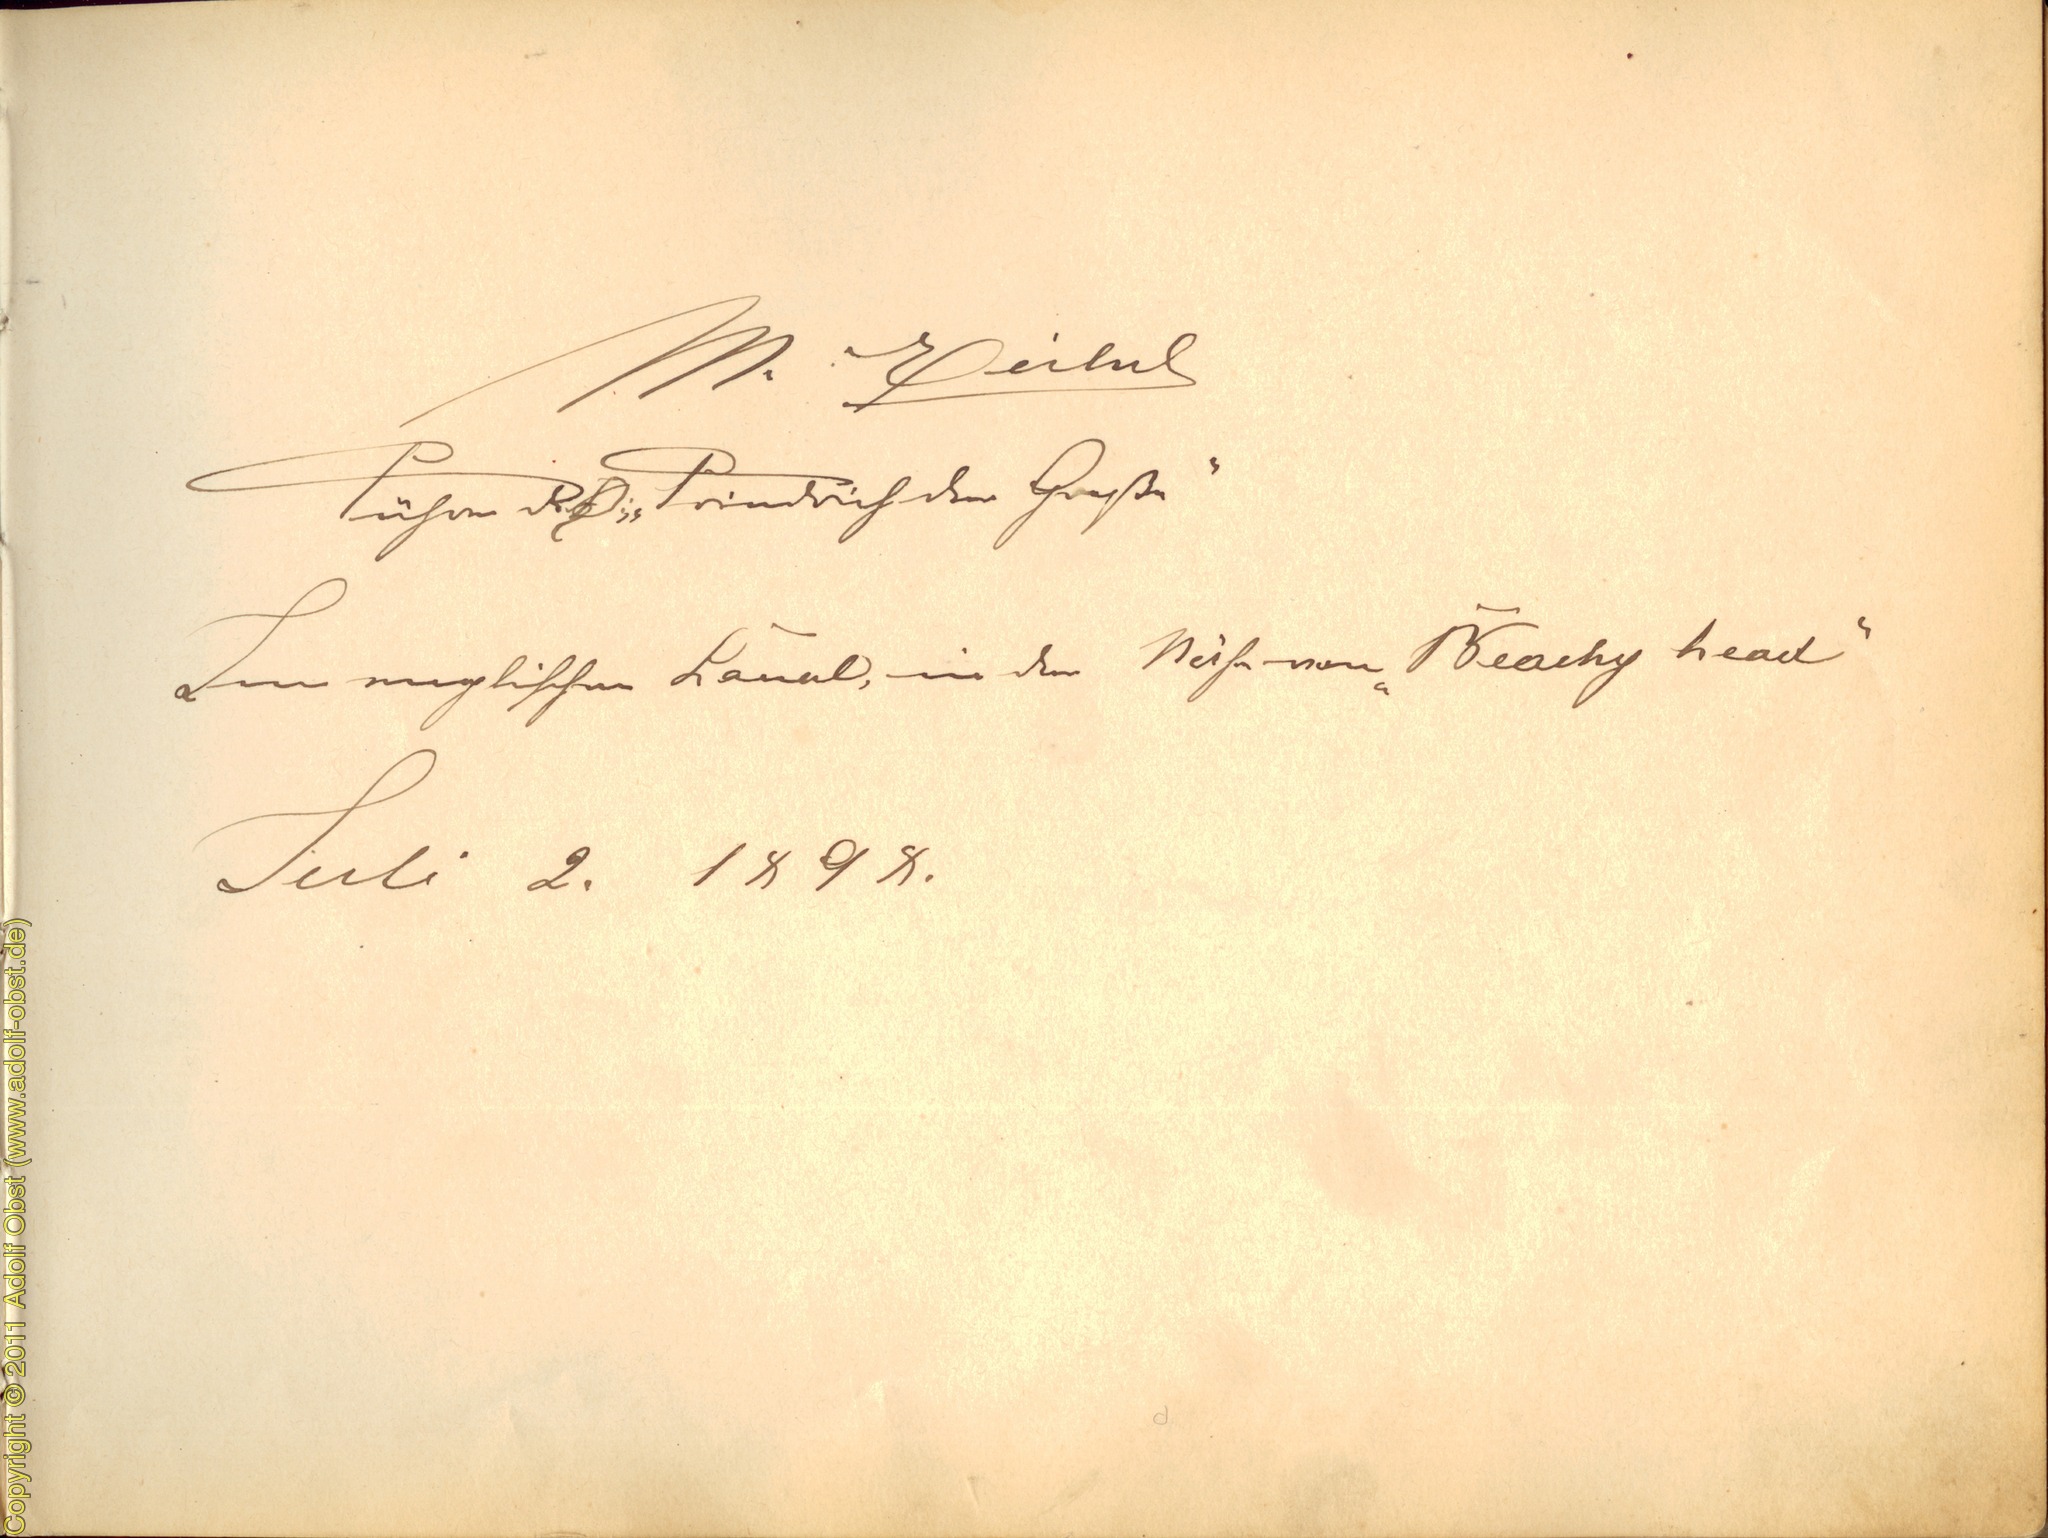 M. Eichel
Führer „Friedrich der Große“
Im englischen Kanal, in der Nähe von „Beachy head“
Juli 2. 1898.
Copyright © 2011 Adolf Obst (www.adolf-obst.de)